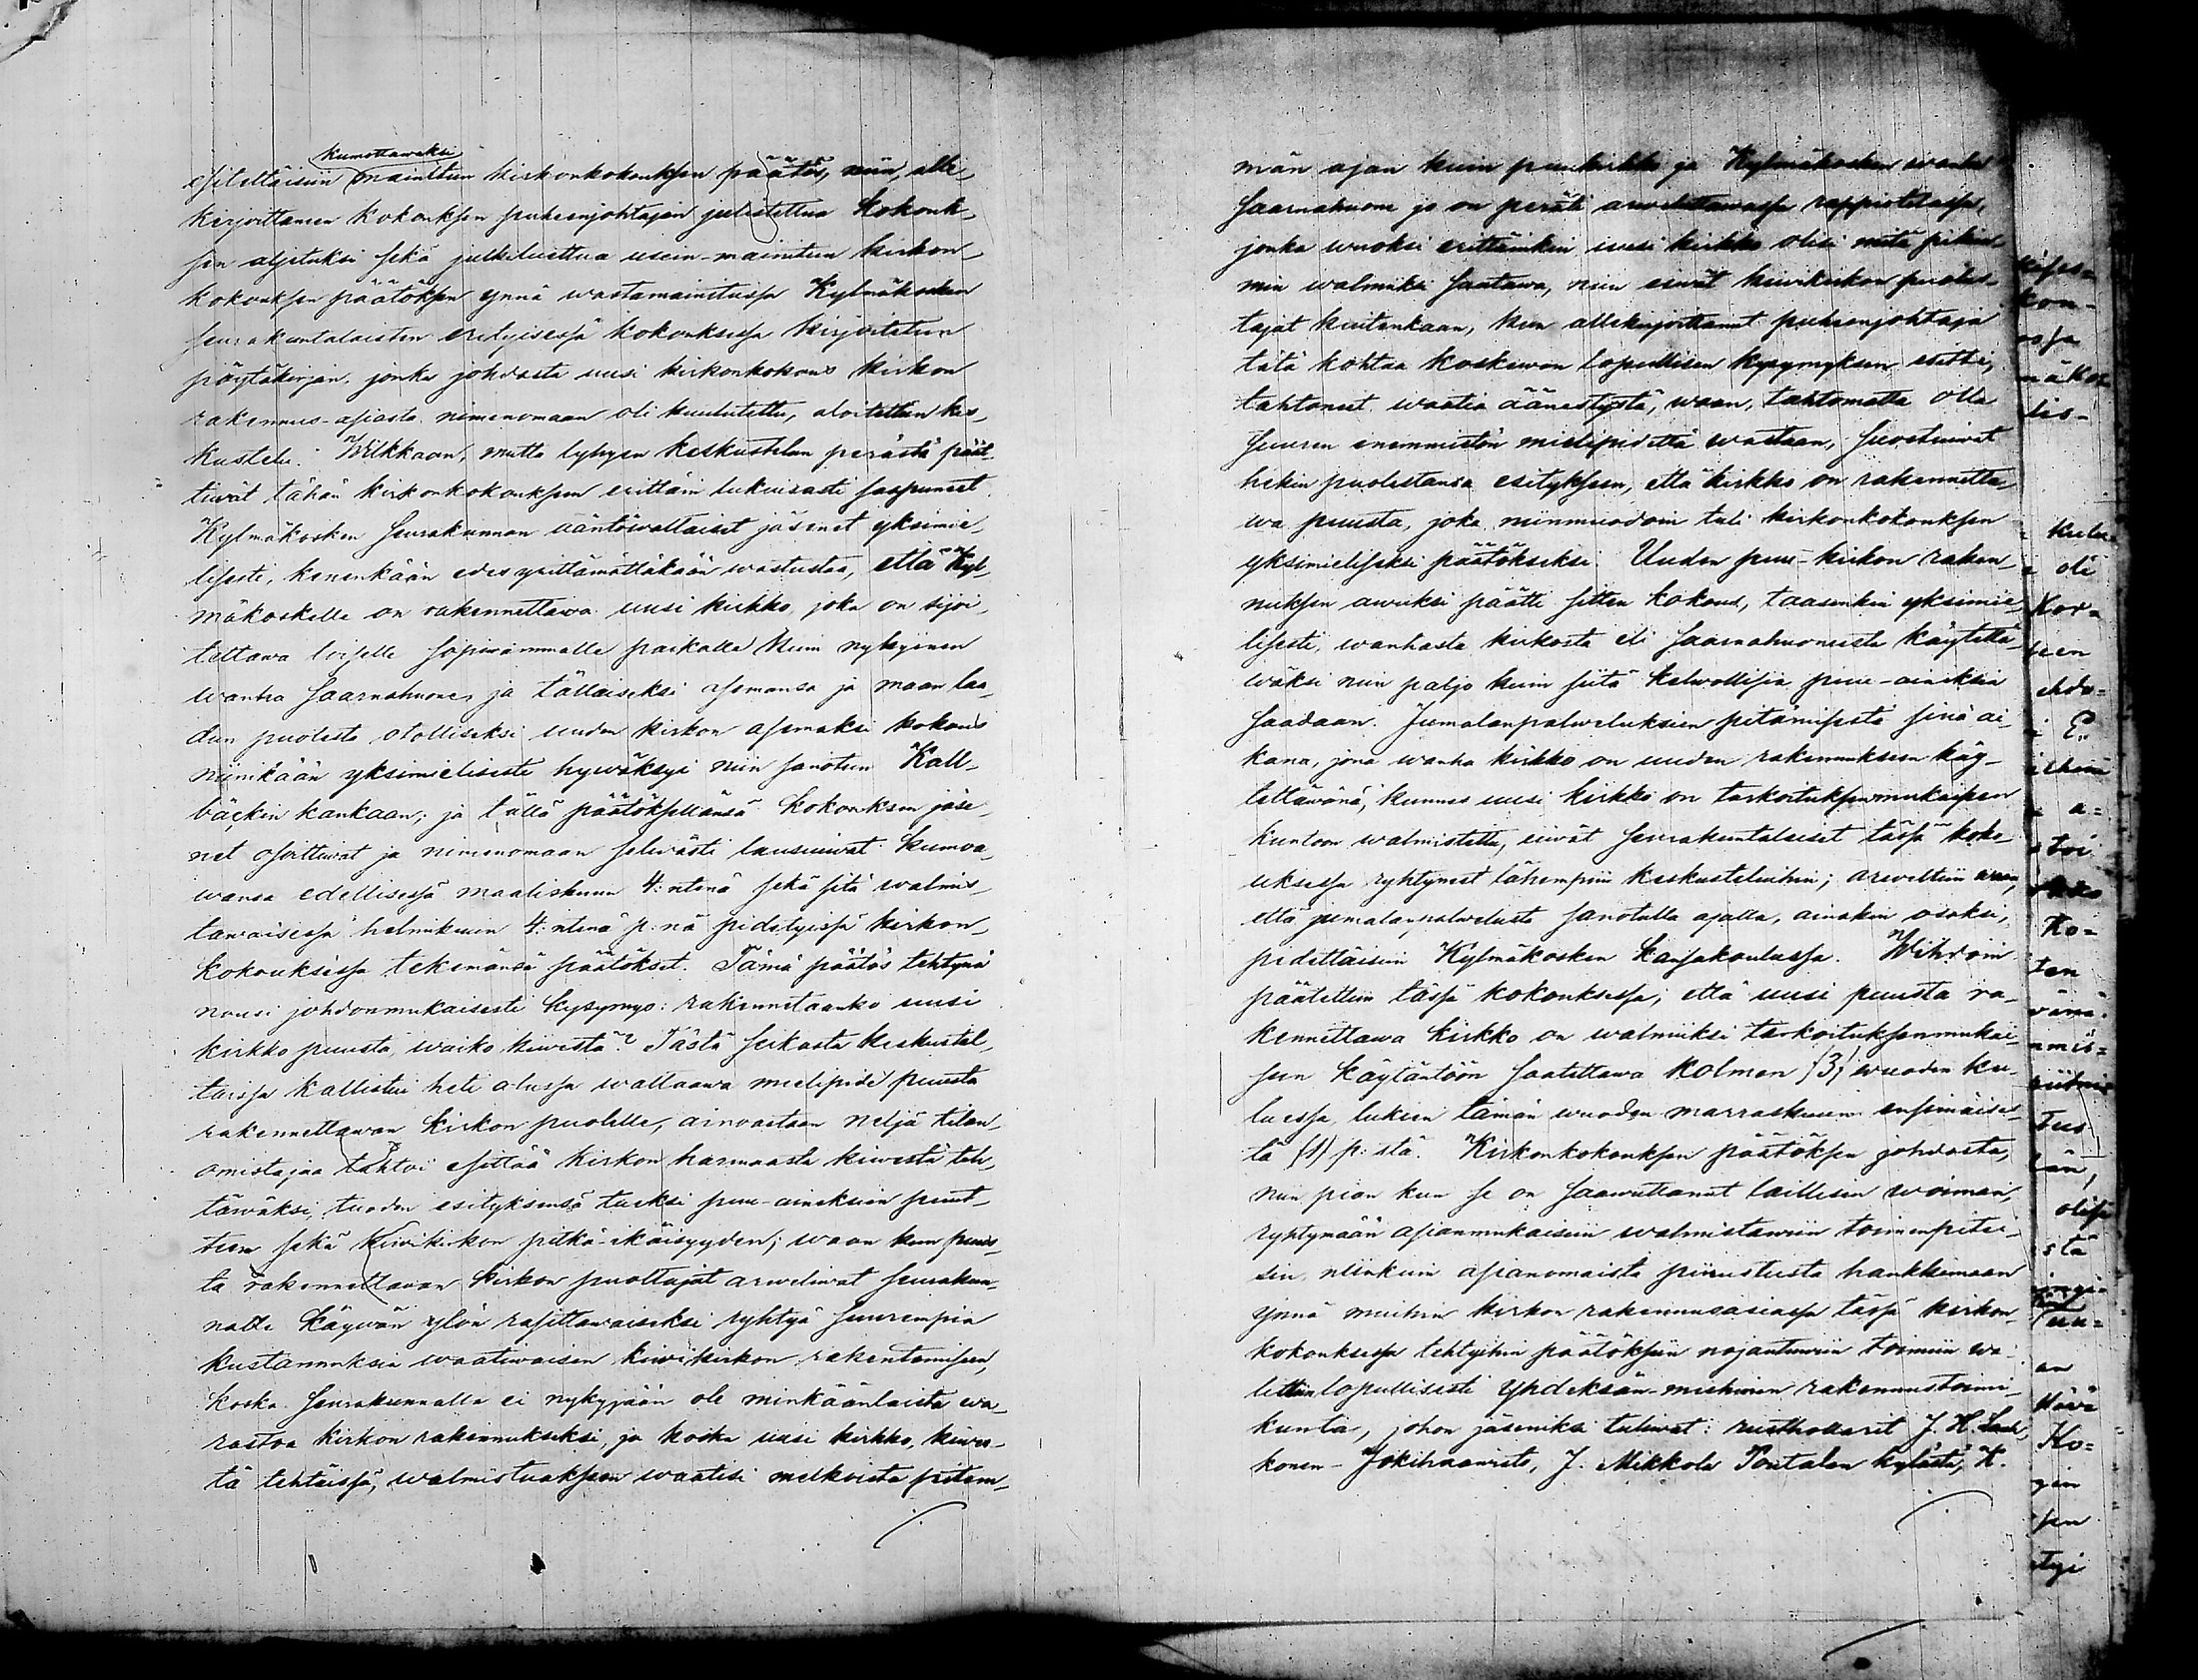 kumottawaksi
esiteltäisiin mainitun kirkonkokouksen päätös, niin, alle-
kirjoittaneen kokouksen puheenjohtajan julistettua kokouk-
sen aljetuksi sekä julkiluettua usein-mainitun kirkon-
kokouksen päätöksen ynnä wastamainitussa Kylmäkosken
seurakuntalaisten erityisessä kokouksessa kirjoitetun
pöytäkirjan, jonka johdosta uusi kirkonkokous kirkon
rakennus-asiasta nimenomaan oli kuulutettu, aloitettiin kes-
kustelu. Wilkkaan, mutta lyhyen keskustelun perästä päät-
tiwät tähän kirkonkokouksen erittäin lukuisasti saapuneet
Kylmäkosken seurakunnan ääntöwaltaiset jäsenet yksimie-
lisesti, kenenkään edes yrittämättäkään wastustaa, että Kyl-
mäkoskelle on rakennettawa uusi kirkko, joka on sijoi-
tettawa toiselle sopiwammalle paikalle kuin nykyinen
wanha saarnahuone, ja tällaiseksi asemansa ja maan laa-
dun puolesta otolliseksi uuden kirkon asemaksi kokous
niinikään yksimielisesti hywäksyi niin sanotun Kall-
bäckin kankaan; ja tällä päätöksellänsä kokouksen jäse-
net osoittiwat ja nimenomaan selwästi lausuiwat kumoa-
wansa edellisessä maaliskuun 4:ntenä sekä sitä walmis-
tawaisessa helmikuun 4:ntenä p:nä pidetyissä kirkon-
kokouksissa tekemänsä päätökset. Tämä päätös tehtynä
nousi johdonmukaisesti kysymys: rakennetaanko uusi
kirkko puusta, waiko kiwestä? Tästä seikasta keskustel-
taissa kallistui heti alussa waltaawa mielipide puusta
rakennettawan kirkon puolelle, ainoastaan neljä tilan-
omistajaa tahtoi esittää kirkon harmaasta kiwestä teh-
täwäksi, tuoden esityksensä tueksi puu-aineksien puut-
teen sekä kiwikirkon pitkä-ikäisyyden; waan kun puus-
ta rakennettawan kirkon puoltajat arweliwat seurakun-
nalle käywän ylön rasittawaiseksi ryhtyä suurempia
kustannuksia waatiwaisen kiwikirkon rakentamiseen,
koska seurakunnalla ei nykyjään ole minkäänlaista wa-
rastoa kirkon rakennukseksi, ja koska uusi kirkko, kiwes-
tä tehtäissä, walmistuakseen waatisi melkoista pitem-
män ajan kuin puukirkko ja Kylmäkosken wanha
saarnahuone jo on peräti arweluttawassa rappiotilassa,
jonka wuoksi erittäinkin uusi kirkko olisi mitä pikim-
min walmiiksi saatawa, niin eiwät kiwikirkon puolus-
tajat kuitenkaan, kun allekirjoittanut puheenjohtaja
tätä kohtaa koskewan lopullisen kysymyksen esitti,
tahtoneet waatia äänestystä, waan, tahtomatta olla
suuren enemmistön mielipidettä wastaan, suostuiwat
hekin puolestansa esitykseen, että kirkko on rakennetta-
wa puusta, joka niinmuodoin tuli kirkonkokouksen
yksimieliseksi päätökseksi. Uuden puu-kirkon raken-
nuksen awuksi päätti sitten kokous, taasenkin yksimie-
lisesti, wanhasta kirkosta eli saarnahuoneesta käytettä-
wäksi niin paljo kuin siitä kelwollisia puu-aineksia
saadaan. Jumalanpalweluksien pitämisestä sinä ai-
kana, jona wanha kirkko on uuden rakennukseen käy-
tettäwänä, kunnes uusi kirkko on tarkoituksenmukaiseen
kuntoon walmistettu, eiwät seurakuntalaiset tässä koko-
uksessa ryhtyneet lähempiin keskusteluihin; arweltiin waan,
että jumalanpalwelusta sanotulla ajalla, ainakin osaksi,
pidettäisiin Kylmäkosken kansakoulussa. Wihdoin
päätettiin tässä kokouksessa, että uusi puusta ra-
kennettawa kirkko on walmiiksi tarkoituksenmukai-
seen käytäntöön saatettawa kolmen (3) wuoden ku-
luessa, lukien tämän wuoden marraskuun ensimäises-
tä (1) p:stä. Kirkonkokouksen päätöksen johdosta,
niin pian kun se on saawuttanut laillisen woiman,
ryhtymään asianmukaisiin walmistawiin toimenpitei-
siin, niinkuin asianomaista piirustusta hankkimaan
ynnä muihin kirkon rakennusasiassa tässä kirkon-
kokouksessa tehtyihin päätöksiin nojautuwiin toimiin wa-
littiin lopullisesti yhdeksän-miehinen rakennustoimi-
kunta, johon jäseniksi tuliwat: rusthollarit J. H.
konen - Jokihaawisto, J. Mikkola Pontalan kylästä, K.
kon-
oli
Kor-
E.
a-
Ko-
ten
Tus
olisi
stä
an
Ko-
gin
sen